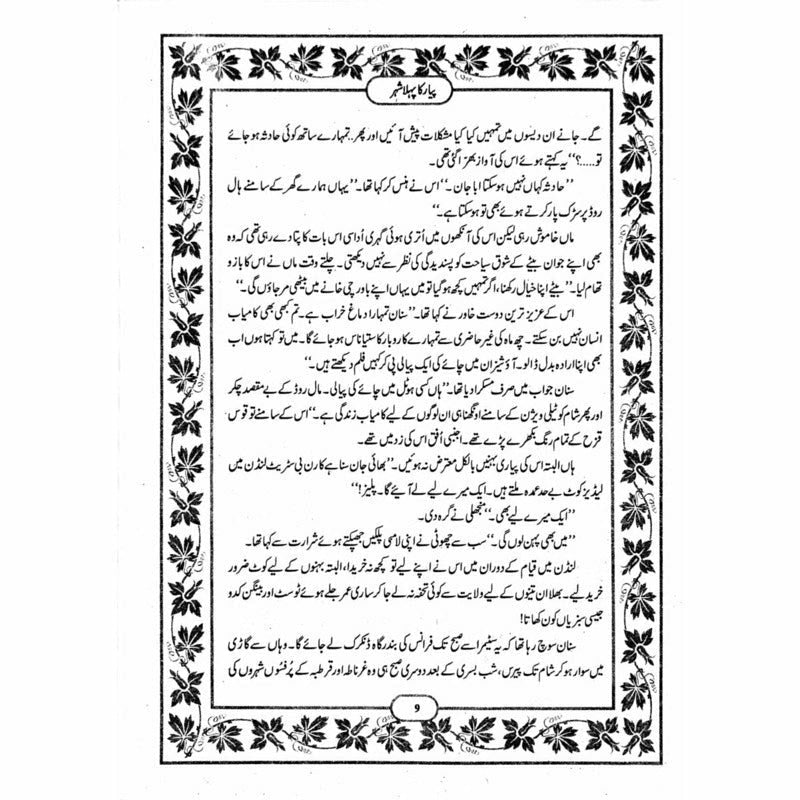 پیار کا پہلا شہر
گے۔ جانے ان دیسوں میں تمہیں کیا کیا مشکلات پیش آئیں اور پھر..تمہارے ساتھ کوئی حادثہ ہو جائے
تو.....؟‘‘ یہ کہتے ہوئے اس کی آواز بھرّا گئی تھی۔
’’حادثہ کہاں نہیں ہو سکتا ابا جان۔‘‘ اس نے ہنس کر کہا تھا۔ ’’یہاں ہمارے گھر کے سامنے ہال
روڈ پر سڑک پار کرتے ہوئے بھی تو ہو سکتا ہے۔‘‘
ماں خاموش رہی لیکن اس کی آنکھوں میں اُتری ہوئی گہری اُداسی اس بات کا پتا دے رہی تھی کہ وہ
بھی اپنے جوان بیٹے کے شوق سیاحت کو پسندیدگی کی نظر سے نہیں دیکھتی۔ چلتے وقت ماں نے اس کا بازو
تھام لیا۔ ’’بیٹے اپنا خیال رکھنا، اگر تمہیں کچھ ہو گیا تو میں یہاں اپنے باورچی خانے میں بیٹھی مر جاؤں گی۔‘‘
اس کے عزیز ترین دوست خاور نے کہا تھا۔ ’’سنان تمہارا دماغ خراب ہے۔ تم کبھی بھی کامیاب
انسان نہیں بن سکتے۔ چھ ماہ کی غیر حاضری سے تمہارے کاروبار کا ستیاناس ہو جائے گا۔ میں تو کہتا ہوں اب
بھی اپنا ارادہ بدل ڈالو۔ آؤ شیزان میں چائے کی ایک پیالی پی کر کہیں فلم دیکھتے ہیں۔‘‘
سنان جواب میں صرف مسکرا دیا تھا۔ ’’ہاں کسی ہوٹل میں چائے کی پیالی۔ مال روڈ کے بے مقصد چکر
اور پھر شام کو ٹیلی ویژن کے سامنے اونگھنا ہی ان لوگوں کے لیے کامیاب زندگی ہے۔‘‘ اس کے سامنے تو قوس
قزح کے تمام رنگ بکھرے پڑے تھے۔ اجنبی اُفق اس کی زد میں تھے۔
ہاں البتہ اس کی پیاری بہنیں بالکل معترض نہ ہوئیں۔ ’’بھائی جان سنا ہے کارن بی سٹریٹ لنڈن میں
لیڈیز کوٹ بے حد عمدہ ملتے ہیں۔ ایک میرے لیے لے آیئے گا۔ پلیز!‘‘
’’ایک میرے لیے بھی۔‘‘ منجھلی نے گرہ دی۔
’’میں بھی پہن لوں گی۔‘‘ سب سے چھوٹی نے اپنی لامبی پلکیں جھپکتے ہوئے شرارت سے کہا تھا۔
لنڈن میں قیام کے دوران میں اس نے اپنے لیے تو کچھ نہ خریدا، البتہ بہنوں کے لیے کوٹ ضرور
خرید لیے۔ بھلا ان تینوں کے لیے ولایت سے کوئی تحفہ نہ لے جا کر ساری عمر جلے ہوئے ٹوسٹ اور بینگن کدو
جیسی سبزیاں کون کھاتا!
سنان سوچ رہا تھا کہ یہ سٹیمر اسے صبح تک فرانس کی بندرگاہ ڈنکرک لے جائے گا۔ وہاں سے گاڑی
میں سوار ہو کر شام تک پیرس، شب بسری کے بعد دوسری صبح ہی وہ غرناطہ اور قرطبہ کے پُرفسُوں شہروں کی
9